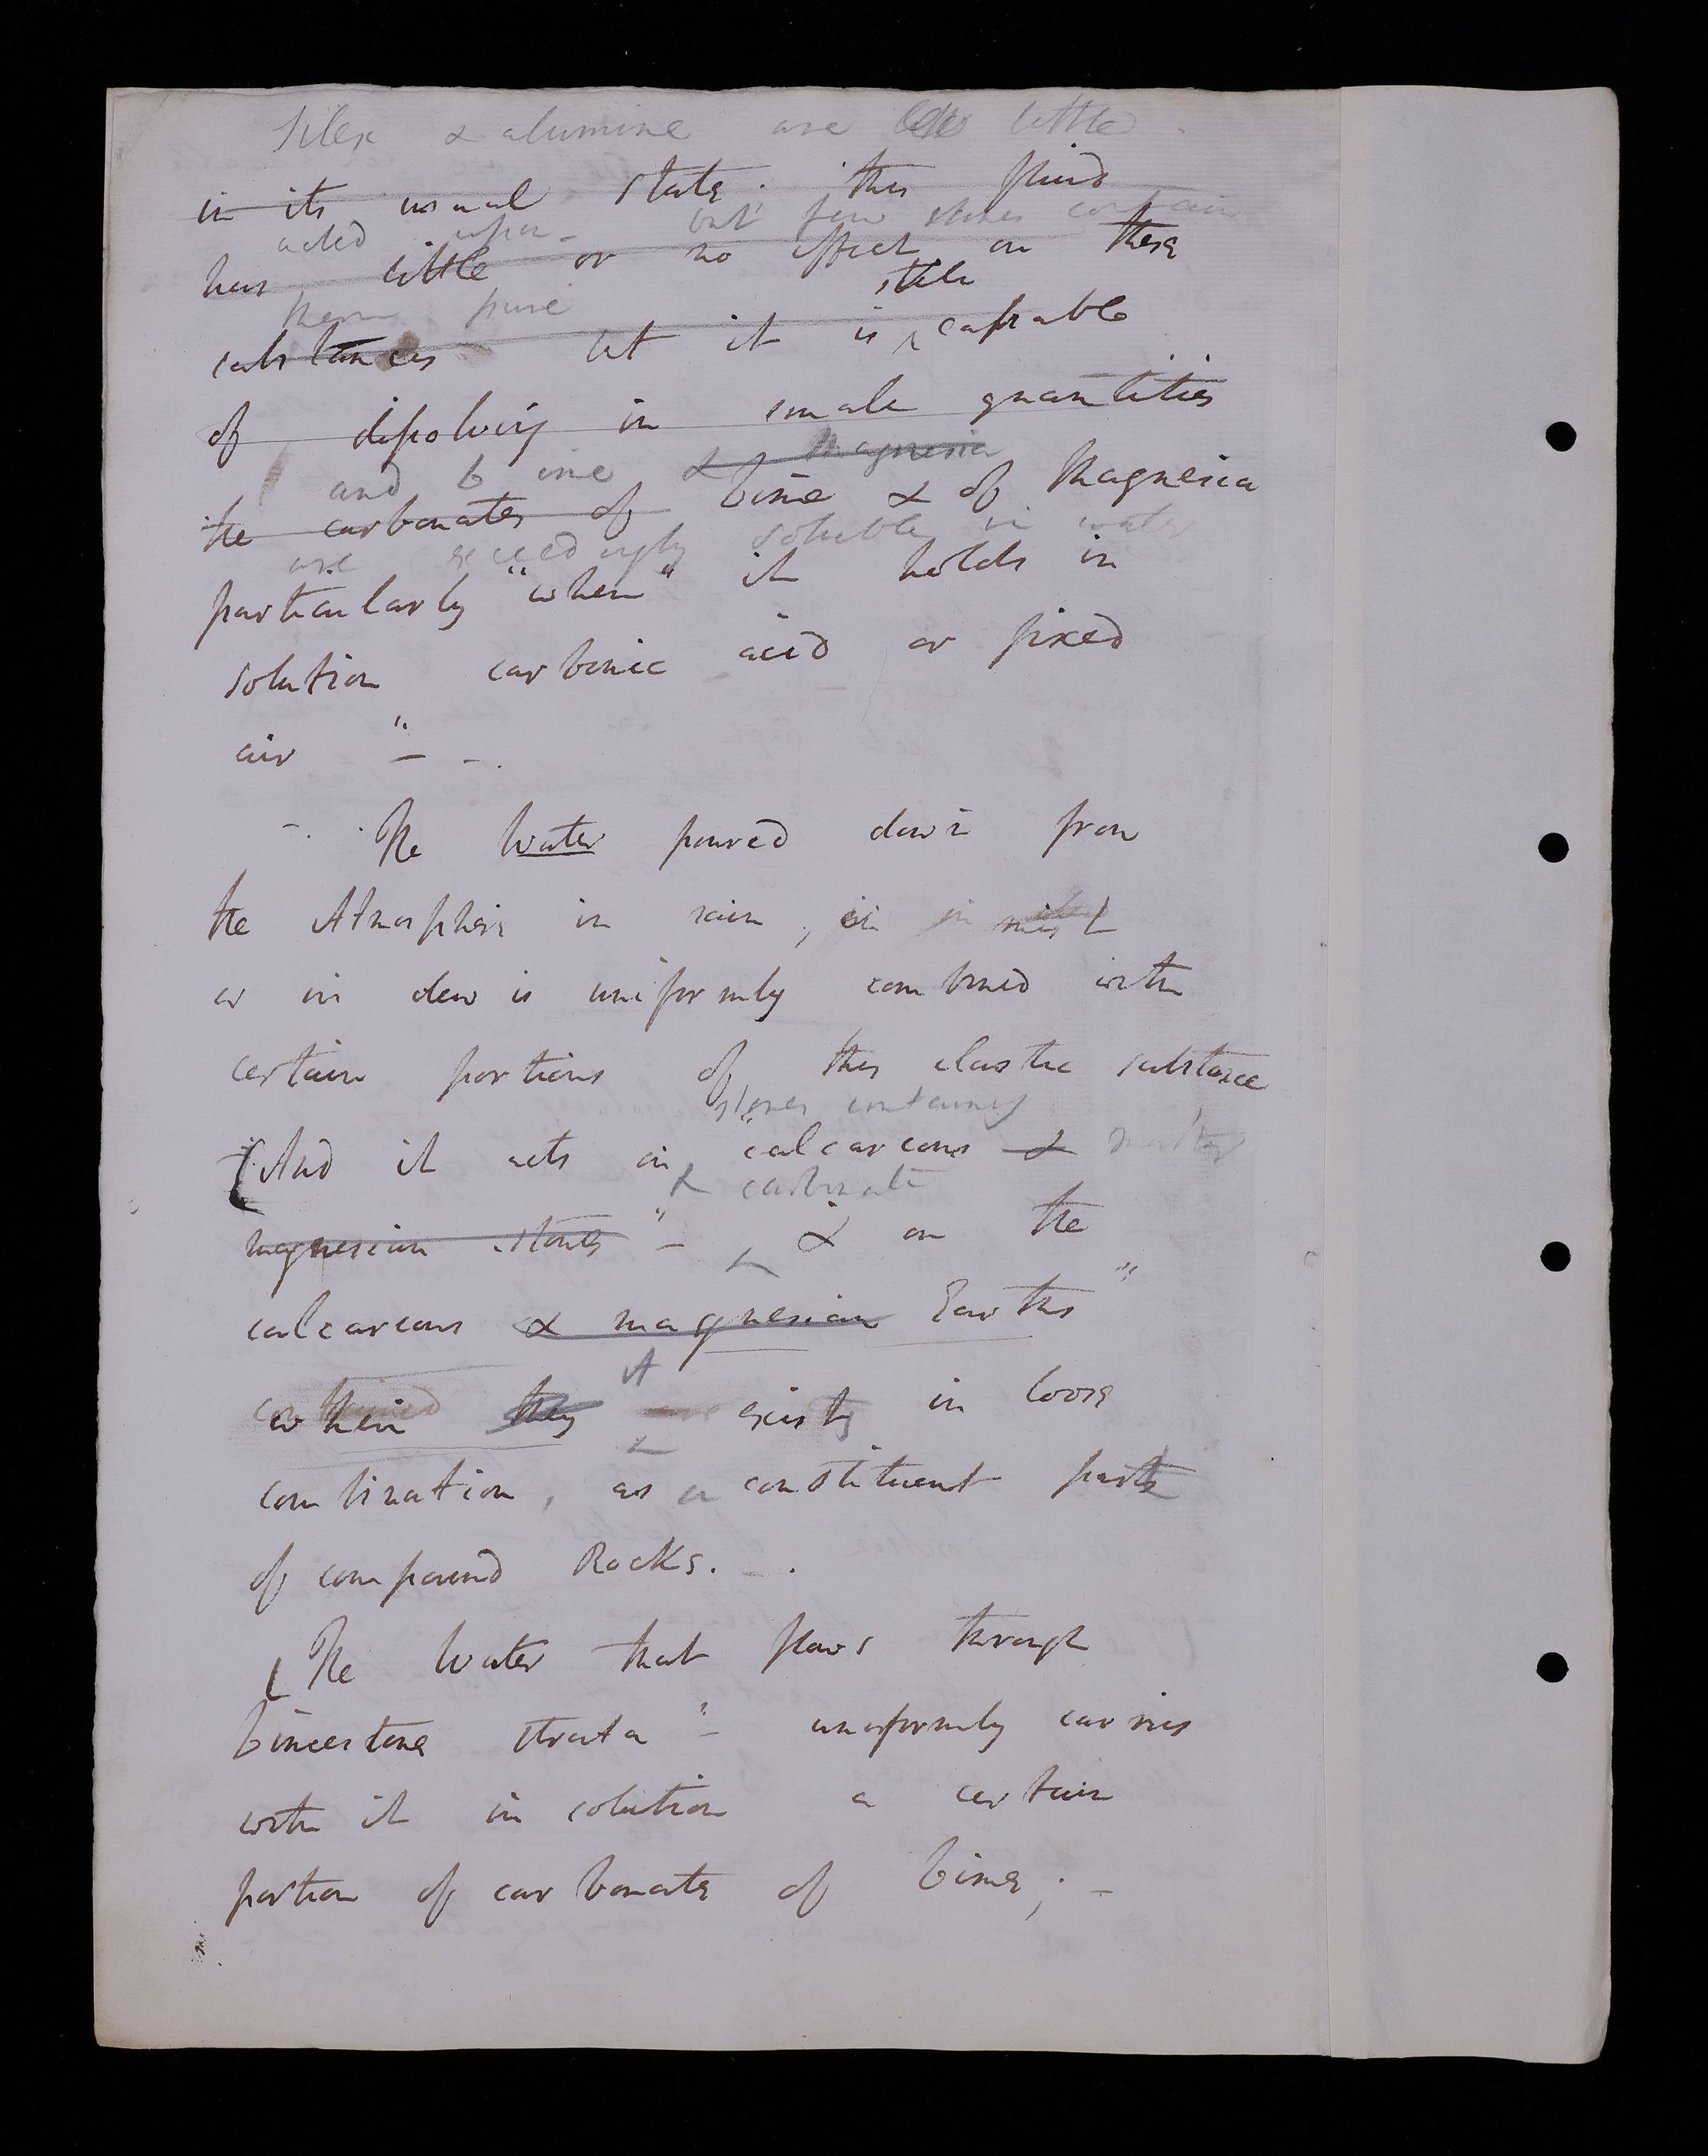 Silex & alumine are little
in its usual state. this fluid
acted upon - but few stones contain
has little or no effect on these
still
them pure
substances but it is capable
of dissolving in small quantities
and lime & Magnesia
the carbonates of lime & of Magnesia
are exceedingly soluble in water
particularly "when" it holds in
solution carbonic acid or fixed
air " - -.
-. The Water poured down from
the Atmosphere in rain, in mist
or in dew is uniformly combined with
certain portions of this elastic substance
stones containing
And it acts on "calcareous &
& carbonate
magnesian stones" - & on the
calcareous & magnesian Earths"
A
when they exists in loose
combination, as a constituent parts
of compound Rocks. - .
The Water that flows through
Limestone strata "- uniformly carries
with it in solution a certain
portion of carbonate of lime; -